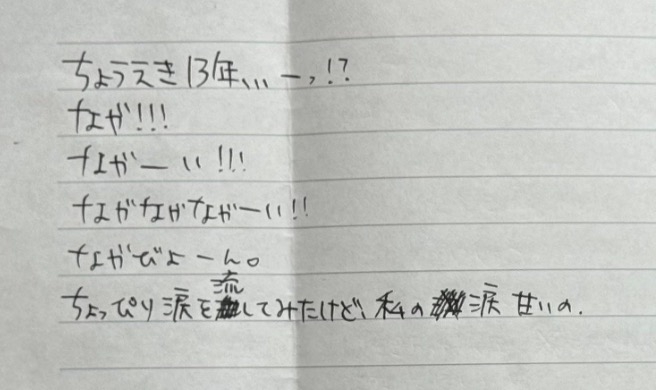 ちょうえき13年、、、ーっ!?
なが!!!
ながーい!!!
ながながながーい!!
ながびよーん。
ちょっぴり涙を流してみたけど、私の涙甘いの.